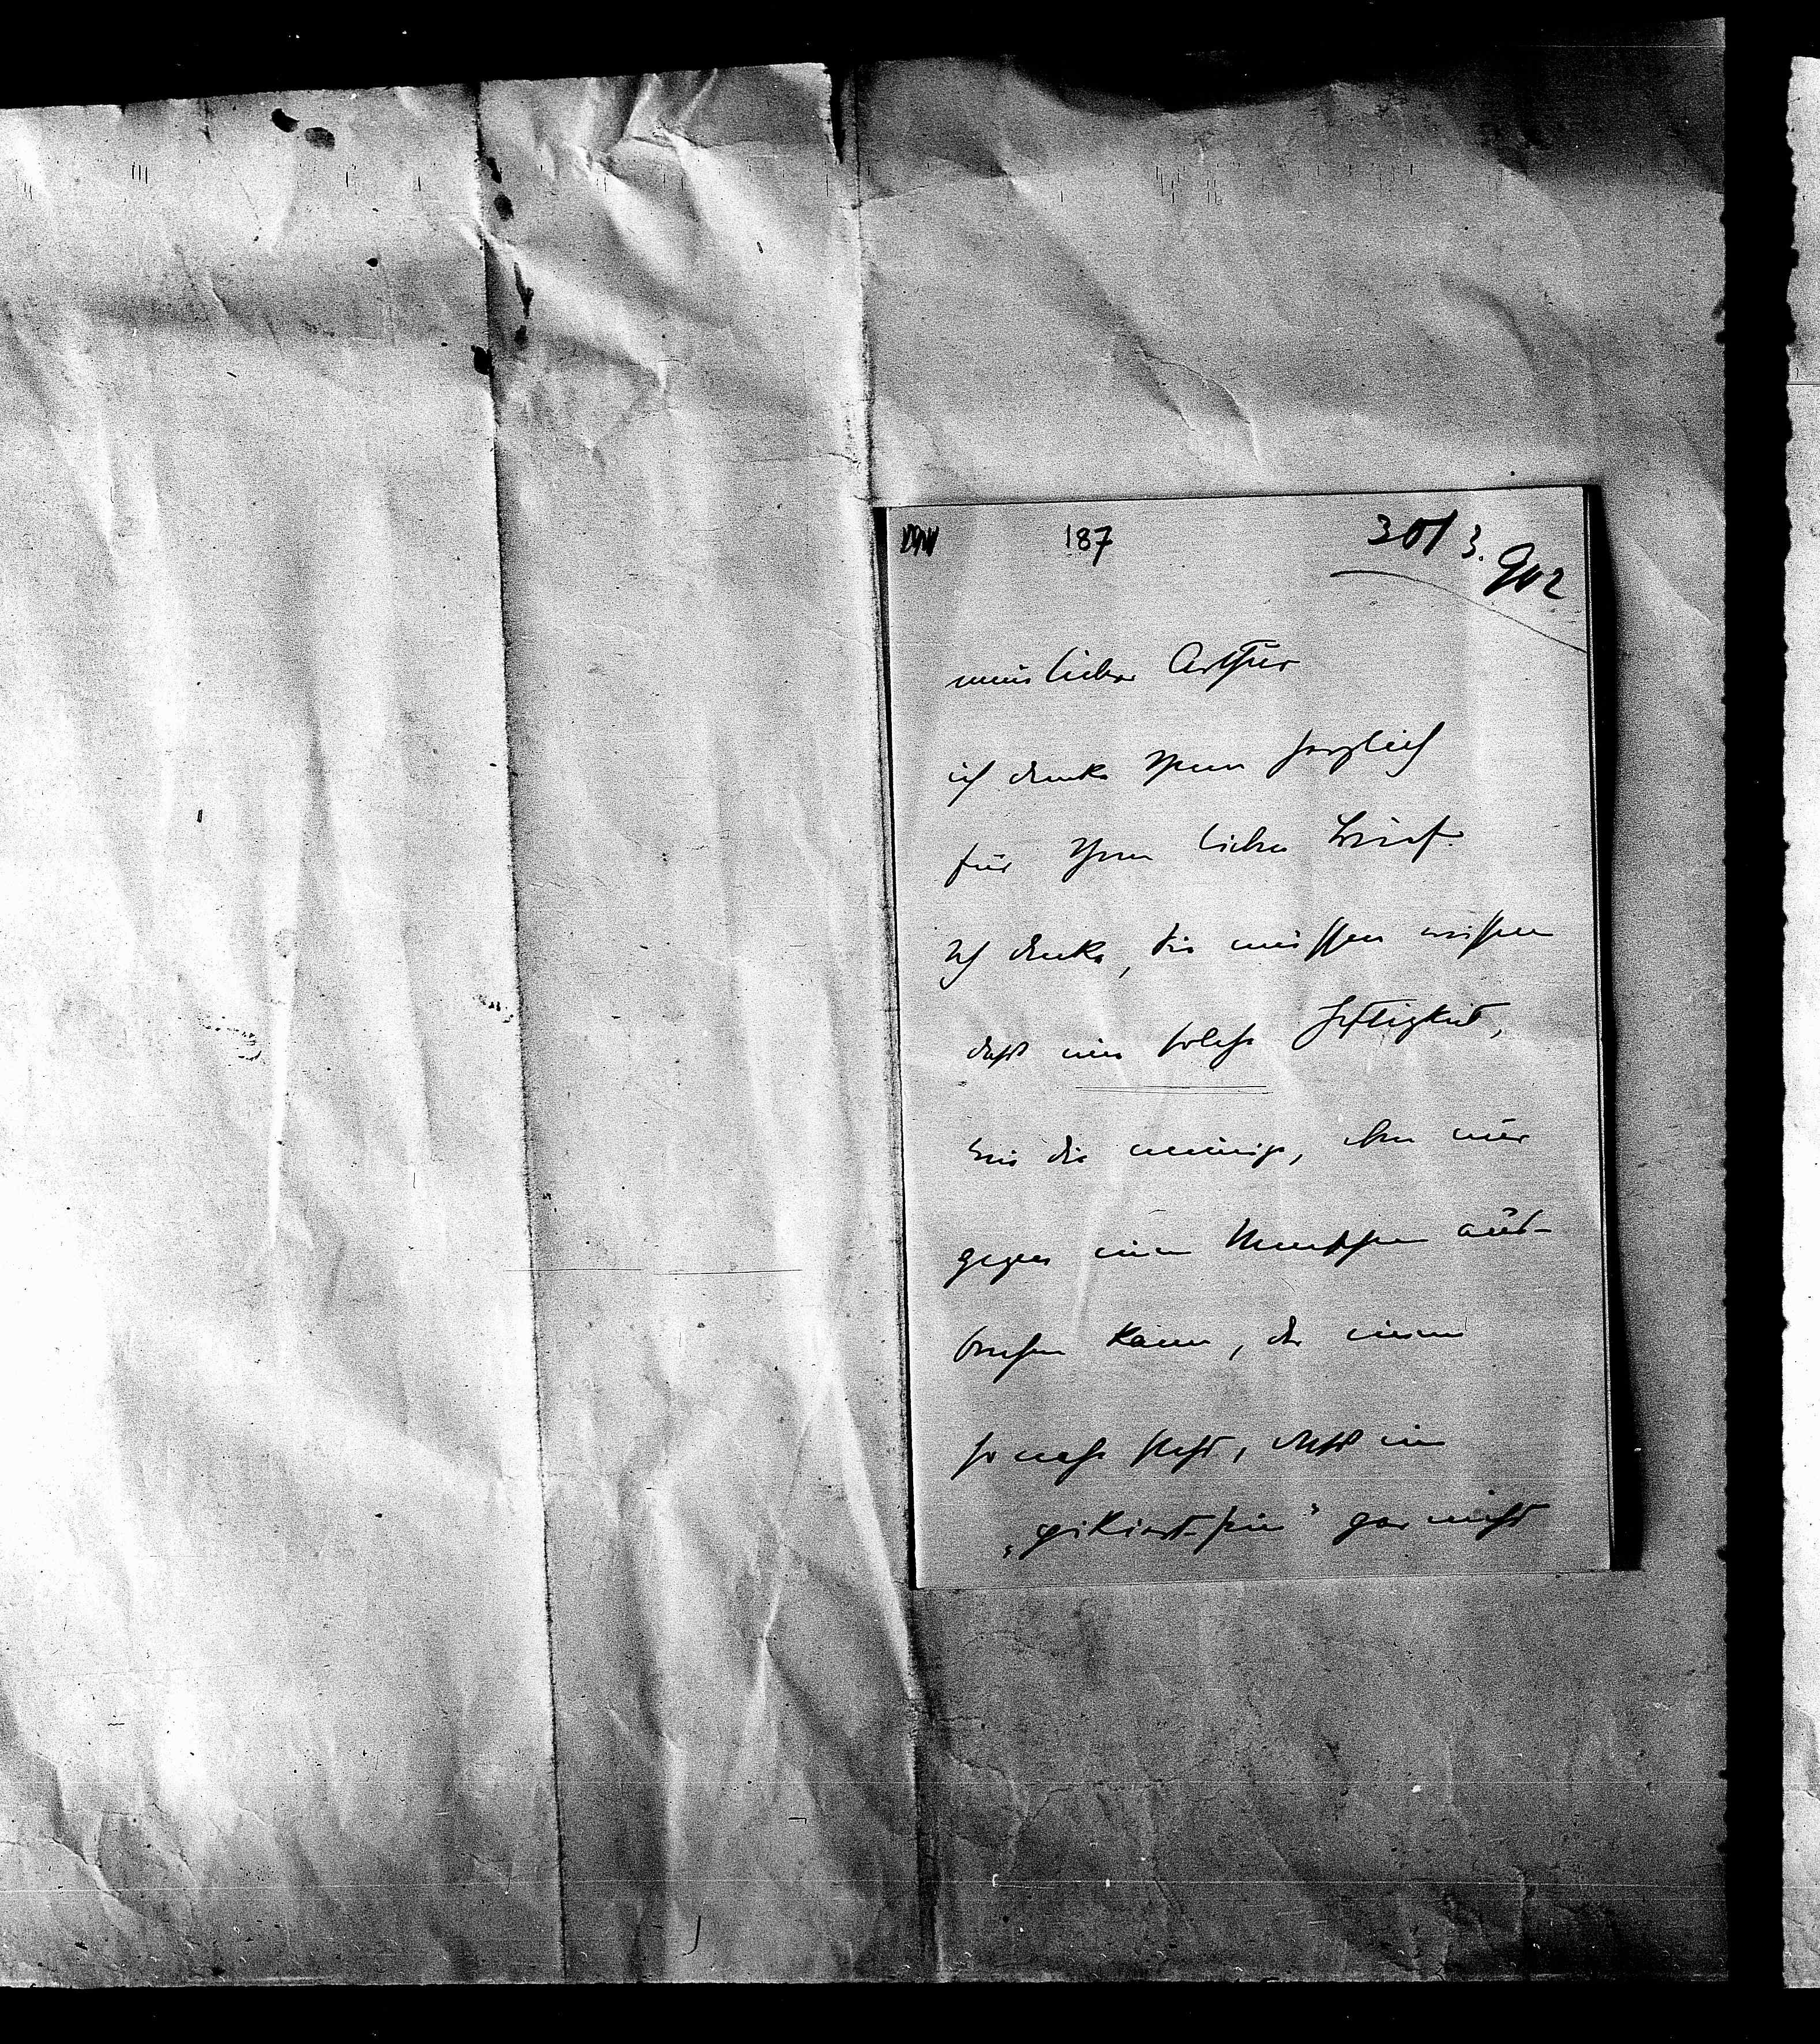 187
30/3. 902
mein lieber Arthur
ich danke Ihnen herzlich
für Ihren lieben Brief.
Ich denke, Sie müssen wissen
dass eine solche Heftigkeit,
wie die meinige, eben nur
gegen einen Menschen aus-
brechen kann, der einem
so nahe steht, dass ein
„pikiert-sein" gar nicht